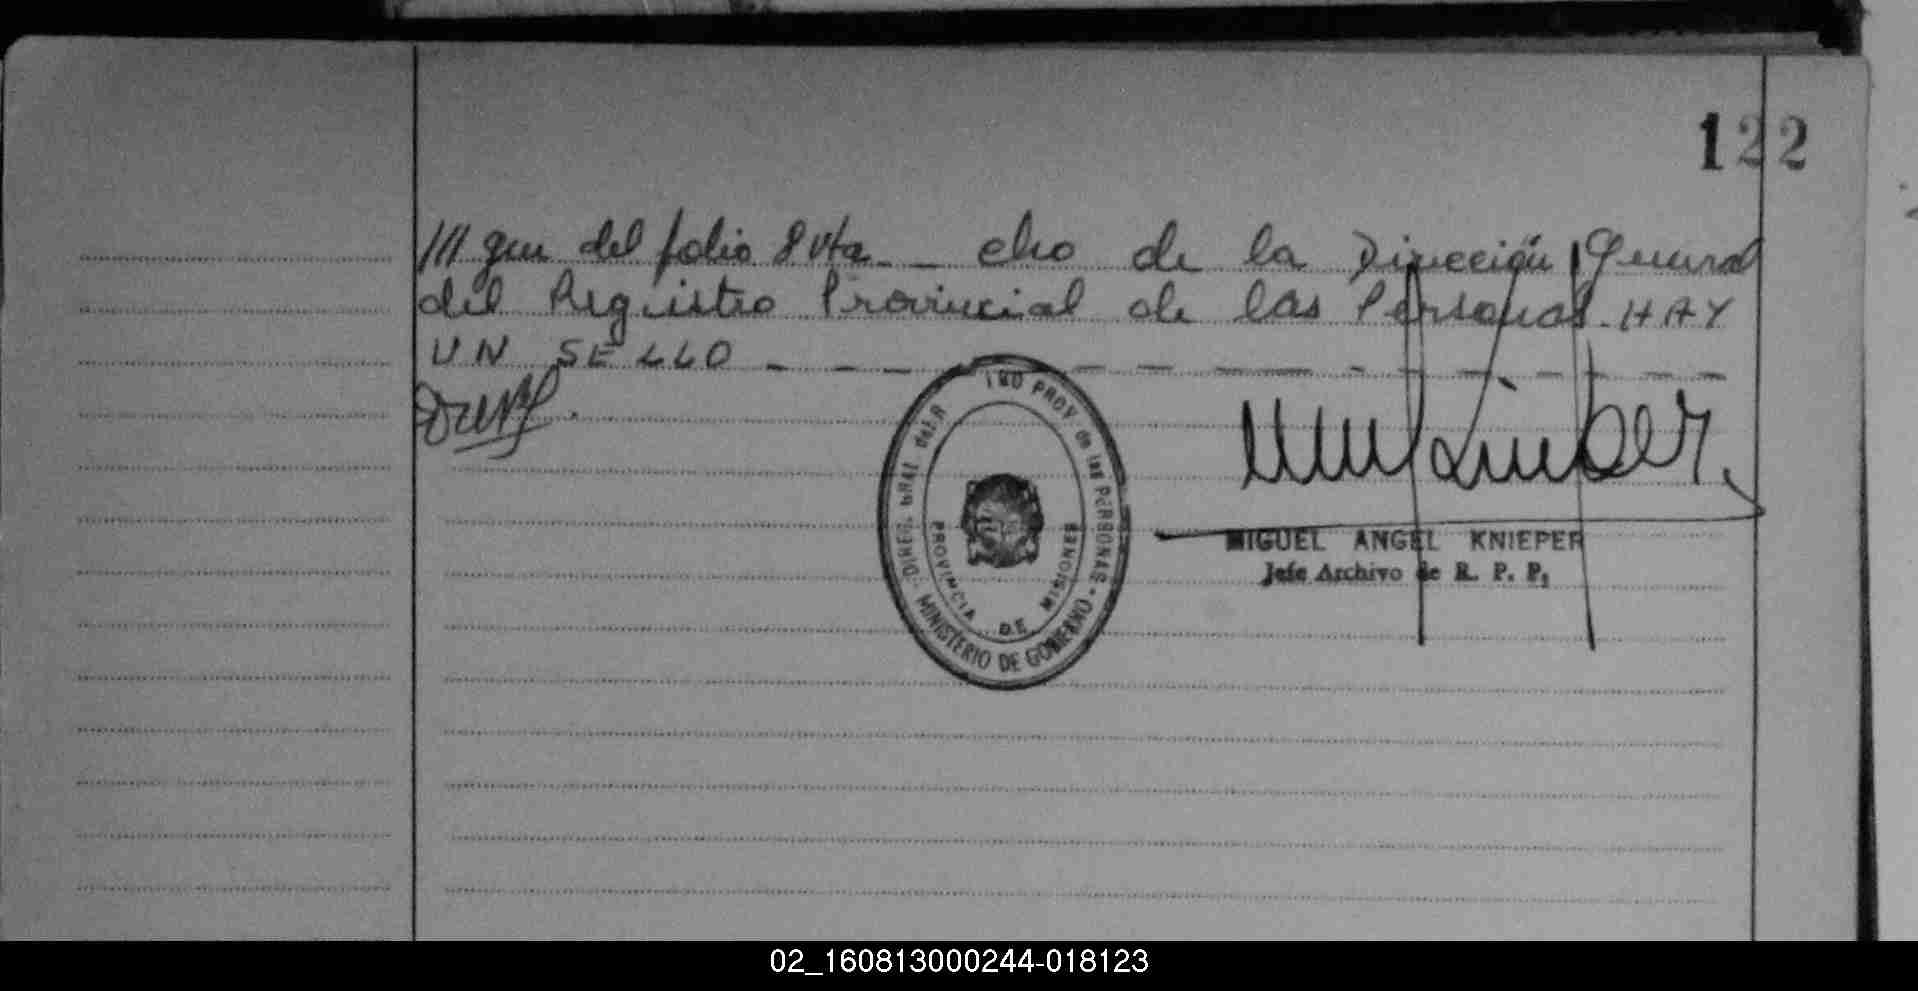 122
/// gue del folio 8 vta. _ cho de la Dirección General
del Registro Provincial de las Personas. HAY
UN SELLO
DIREC. GRAL del R PROV. de las PERSONAS - MINISTERIO DE GOBIERNO
PROVINCIA DE MISIONES
MIGUEL ANGEL KNIEPER
Jefe Archivo de R. P. P.
02_160813000244-018123